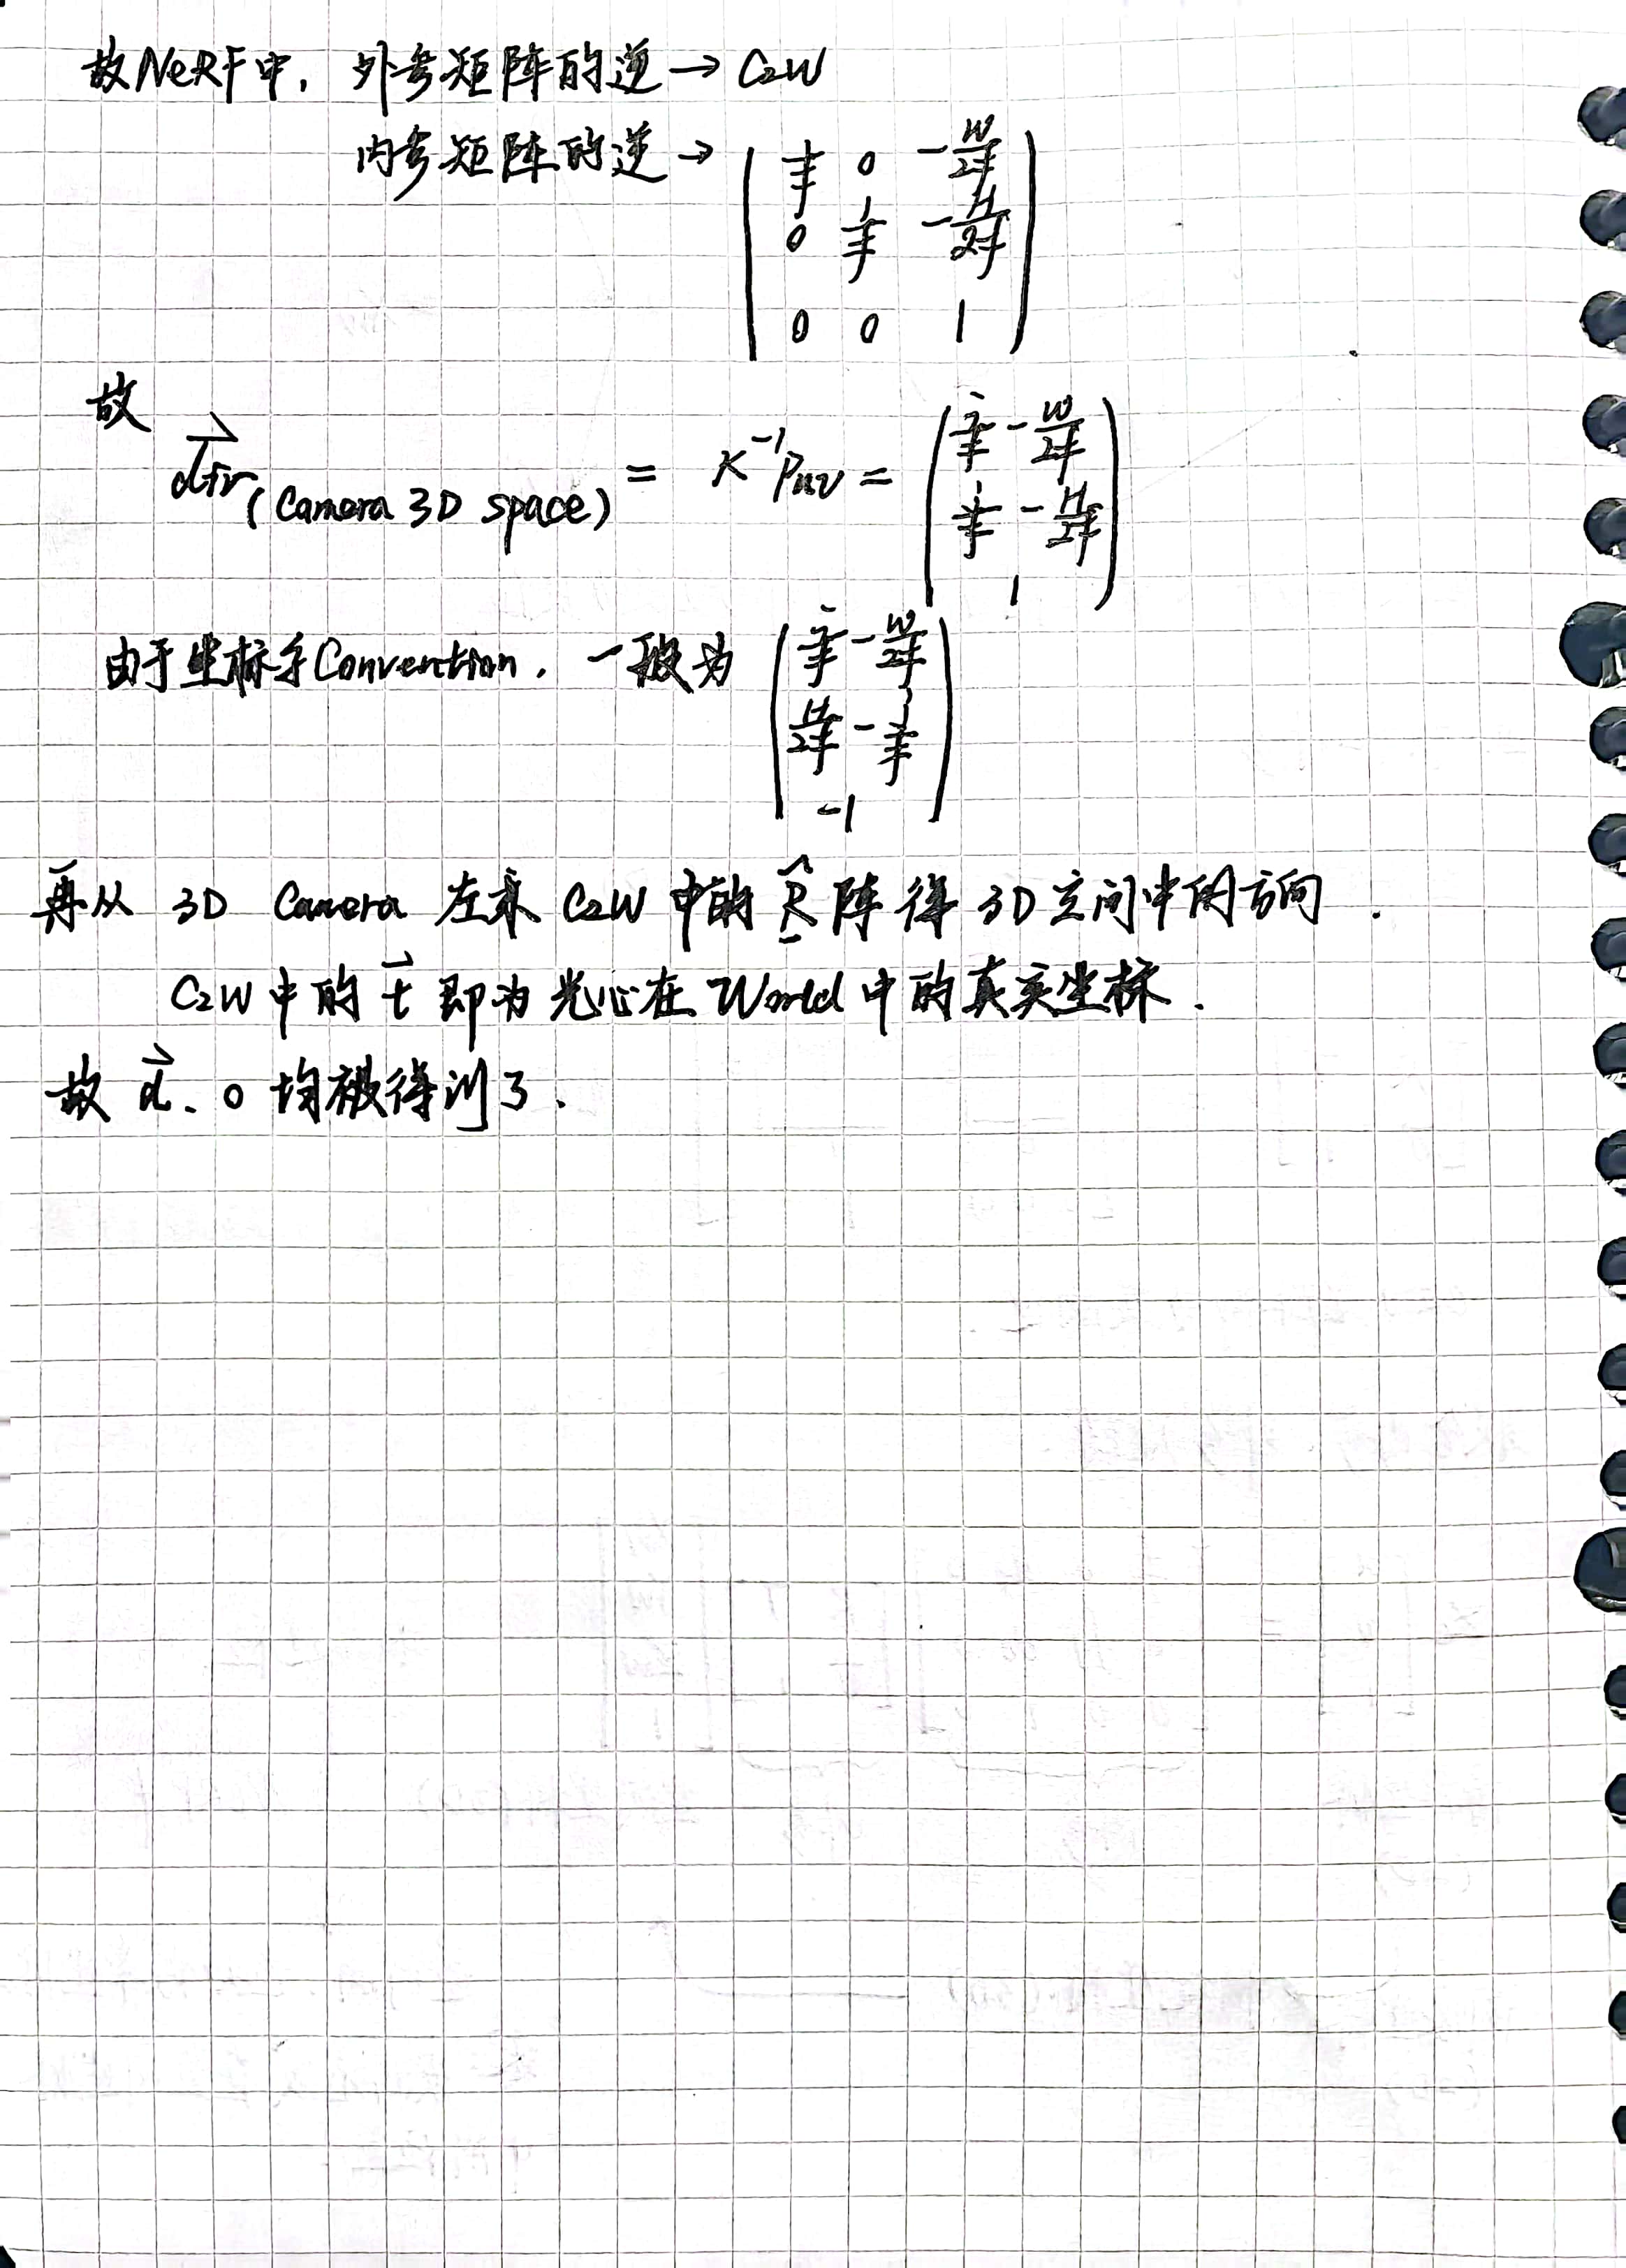 故NeRF中, 外参矩阵的逆 → C2W
内参矩阵的逆 → ( 1/f 0 -W/2f
0 1/f -H/2f
0 0 1 )
故
dir (Camera 3D space) = K^-1 P_uv = ( i/f - W/2f
j/f - H/2f
1 )
由于坐标系Convention. 一般为 ( i/f - W/2f
H/2f - j/f
-1 )
再从 3D Camera 左乘 C2W 中的 R 阵 得 3D 空间中的方向 .
C2W 中的 t 即为光心在 World 中的真实坐标 .
故 d. o 均被得到了.